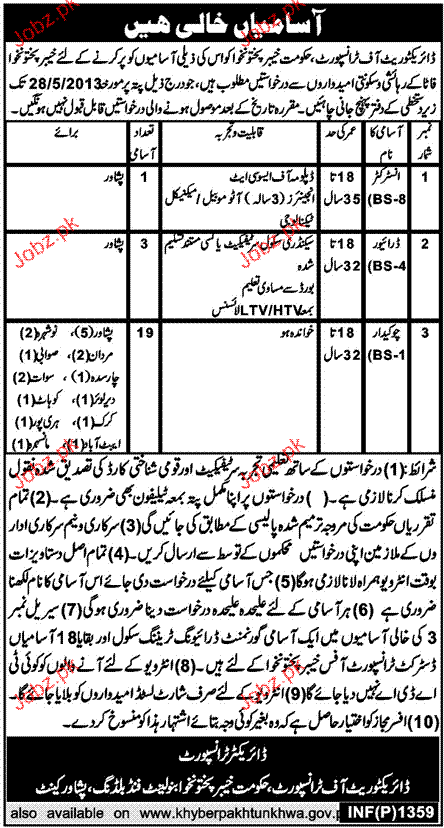 آسامیاں خالی ھیں
ڈائریکٹوریٹ آف ٹرانسپورٹ، حکومت خیبر پختونخوا کو اس کی ذیلی آسامیوں کو پر کرنے کے لئے خیبر پختونخوا
فاٹا کے رہائشی و سکونتی امیدواروں سے درخواستیں مطلوب ہیں، جو درج ذیل پتہ پر مورخہ 28/5/2013 تک
زیر دستخطی کے دفتر پہنچ جانی چاہئیں۔ مقررہ تاریخ کے بعد موصول ہونے والی درخواستیں قابل قبول نہیں ہونگیں۔
نمبر شمار
آسامی کا نام
عمر کی حد
قابلیت و تجربہ
تعداد آسامی
برائے
1
انسٹرکٹر
(BS-8)
18 تا
35 سال
ڈپلومہ آف ایسوسی ایٹ
انجینئرز (3 سالہ) آٹو موبیل/ میکنیکل
ٹیکنالوجی
1
پشاور
2
ڈرائیور
(BS-4)
18 تا
32 سال
سیکنڈری سکول سرٹیفیکیٹ یا کسی مستند تسلیم
شدہ
بورڈ سے مساوی تعلیم
بمعہ LTV/HTV لائسنس
3
پشاور
3
چوکیدار
(BS-1)
18 تا
32 سال
خواندہ ہو
19
پشاور (5)، نوشہرہ (2)
مردان (2)، صوابی (1)
چارسدہ (1)، سوات (2)
دیر لوئر (1)، کوہاٹ (1)
کرک (1)، ہری پور (1)
ایبٹ آباد (1)، مانسہرہ (1)
شرائط: (1) درخواستوں کے ساتھ تعلیمی تجربہ سرٹیفیکیٹ اور قومی شناختی کارڈ کی تصدیق شدہ نقول
منسلک کرنا لازمی ہے۔ ( ) درخواستوں پر اپنا مکمل پتہ بمعہ ٹیلیفون بھی ضروری ہے۔ (2) تمام
تقرریاں حکومت کی مروجہ ترمیم شدہ پالیسی کے مطابق کی جائیں گی (3) سرکاری و نیم سرکاری ادارو
وں کے ملازمین اپنی درخواستیں محکموں کے توسط سے ارسال کریں۔ (4) تمام اصل دستاویزات
بوقت انٹرویو ہمراہ لانا لازمی ہوگا (5) جس آسامی کیلئے درخواست دی جائے اس آسامی کا نام لکھنا
ضروری ہے (6) ہر آسامی کے لئے علیحدہ علیحدہ درخواست دینا ضروری ہوگی (7) سیریل نمبر
3 کی خالی آسامیوں میں ایک آسامی گورنمنٹ ڈرائیونگ ٹریننگ سکول اور بقایا 18 آسامیاں
ڈسٹرکٹ ٹرانسپورٹ آفس خیبر پختونخوا کے لئے ہیں۔ (8) انٹرویو کے لئے آنے والوں کو کوئی ٹی
اے ڈی اے نہیں دیا جائے گا (9) انٹرویو کے لئے صرف شارٹ لسٹڈ امیدواروں کو بلایا جائے گا۔
(10) افسر مجاز کو اختیار حاصل ہے کہ وہ بغیر کوئی وجہ بتائے اشتہار ہذا کو منسوخ کر دے۔
ڈائریکٹر ٹرانسپورٹ
ڈائریکٹوریٹ آف ٹرانسپورٹ، حکومت خیبر پختونخوا بنولینٹ فنڈ بلڈنگ، پشاور کینٹ
also available on www.khyberpakhtunkhwa.gov.p
INF(P)1359
Jobz.pk
Jobz.pk
Jobz.pk
Jobz.pk
Jobz.pk
Jobz.pk
Jobz.pk
Jobz.pk